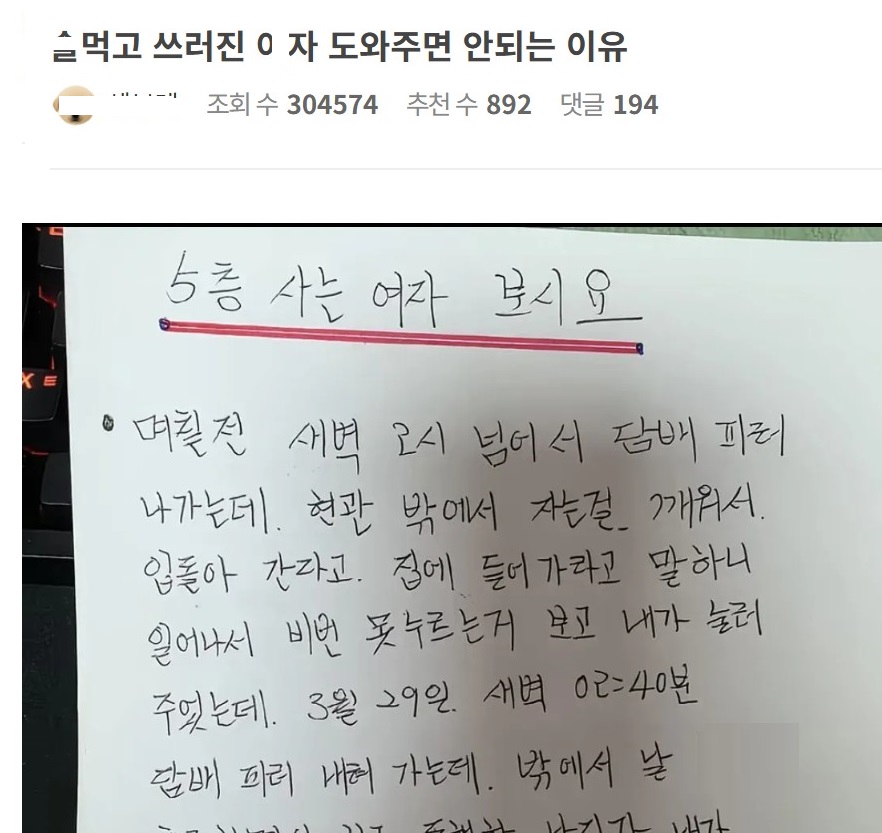 술먹고 쓰러진 여자 도와주면 안되는 이유
조회 수 304574 추천 수 892 댓글 194
5층 사는 여자 보시요
며칠전 새벽 2시 넘어서 담배 피러
나가는데. 현관 밖에서 자는걸 깨워서.
입돌아 간다고. 집에 들어가라고 말하니
일어나서 비번 못누르는거 보고 내가 눌러
주었는데. 3월 29일. 새벽 02=40분
담배 피러 내려 가는데. 밖에서 날